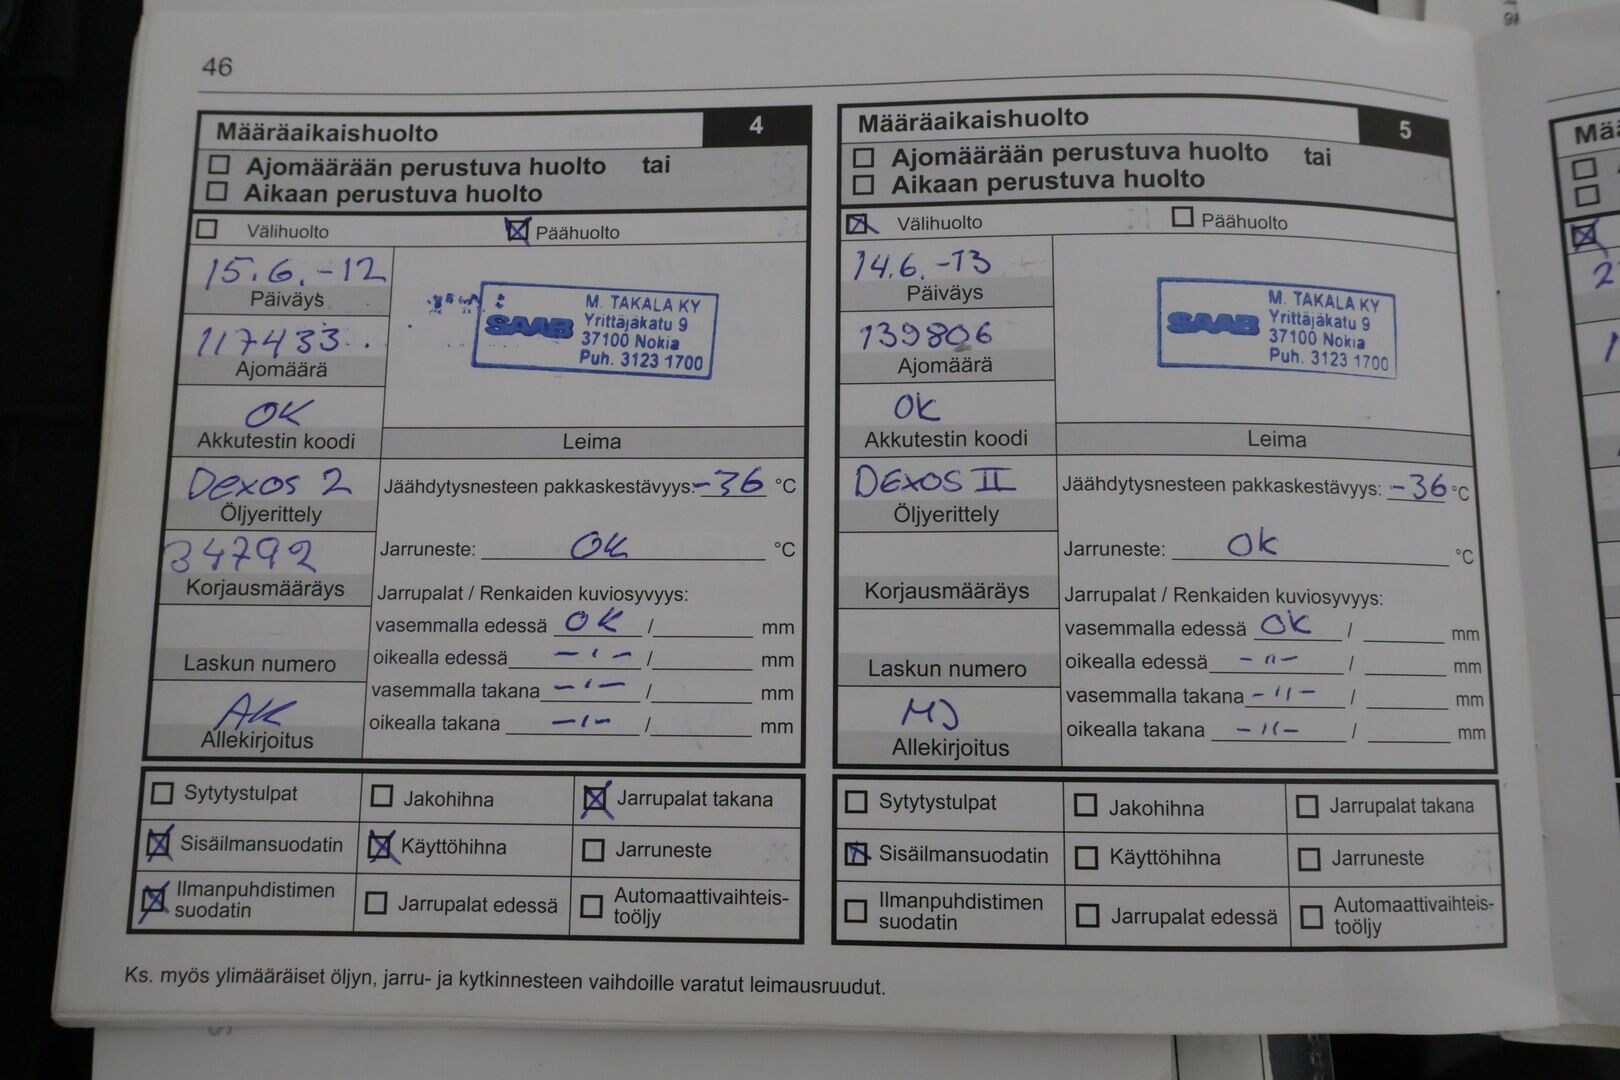 46
Määräaikaishuolto 4
Ajomäärään perustuva huolto tai
Aikaan perustuva huolto
Välihuolto Päähuolto
15.6.-12
Päiväys
117433
Ajomäärä
OK
Akkutestin koodi
Dexos 2
Öljyerittely
34792
Korjausmääräys
Laskun numero
AK
Allekirjoitus
SAAB
M. TAKALA KY
Yrittäjäkatu 9
37100 Nokia
Puh. 3123 1700
Leima
Jäähdytysnesteen pakkaskestävyys: -36 °C
Jarruneste: OK °C
Jarrupalat / Renkaiden kuviosyvyys:
vasemmalla edessä OK / mm
oikealla edessä -ı- / mm
vasemmalla takana -ı- / mm
oikealla takana -ı- / mm
Sytytystulpat Jakohihna Jarrupalat takana
Sisäilmansuodatin Käyttöhihna Jarruneste
Ilmanpuhdistimen suodatin Jarrupalat edessä Automaattivaihteis-
toöljy
Määräaikaishuolto 5
Ajomäärään perustuva huolto tai
Aikaan perustuva huolto
Välihuolto Päähuolto
14.6.-13
Päiväys
139806
Ajomäärä
OK
Akkutestin koodi
DEXOS II
Öljyerittely
Korjausmääräys
Laskun numero
MJ
Allekirjoitus
SAAB
M. TAKALA KY
Yrittäjäkatu 9
37100 Nokia
Puh. 3123 1700
Leima
Jäähdytysnesteen pakkaskestävyys: -36 °C
Jarruneste: OK °C
Jarrupalat / Renkaiden kuviosyvyys:
vasemmalla edessä OK / mm
oikealla edessä -"- / mm
vasemmalla takana -"- / mm
oikealla takana -"- / mm
Sytytystulpat Jakohihna Jarrupalat takana
Sisäilmansuodatin Käyttöhihna Jarruneste
Ilmanpuhdistimen suodatin Jarrupalat edessä Automaattivaihteis-
toöljy
Ks. myös ylimääräiset öljyn, jarru- ja kytkinnesteen vaihdoille varatut leimausruudut.